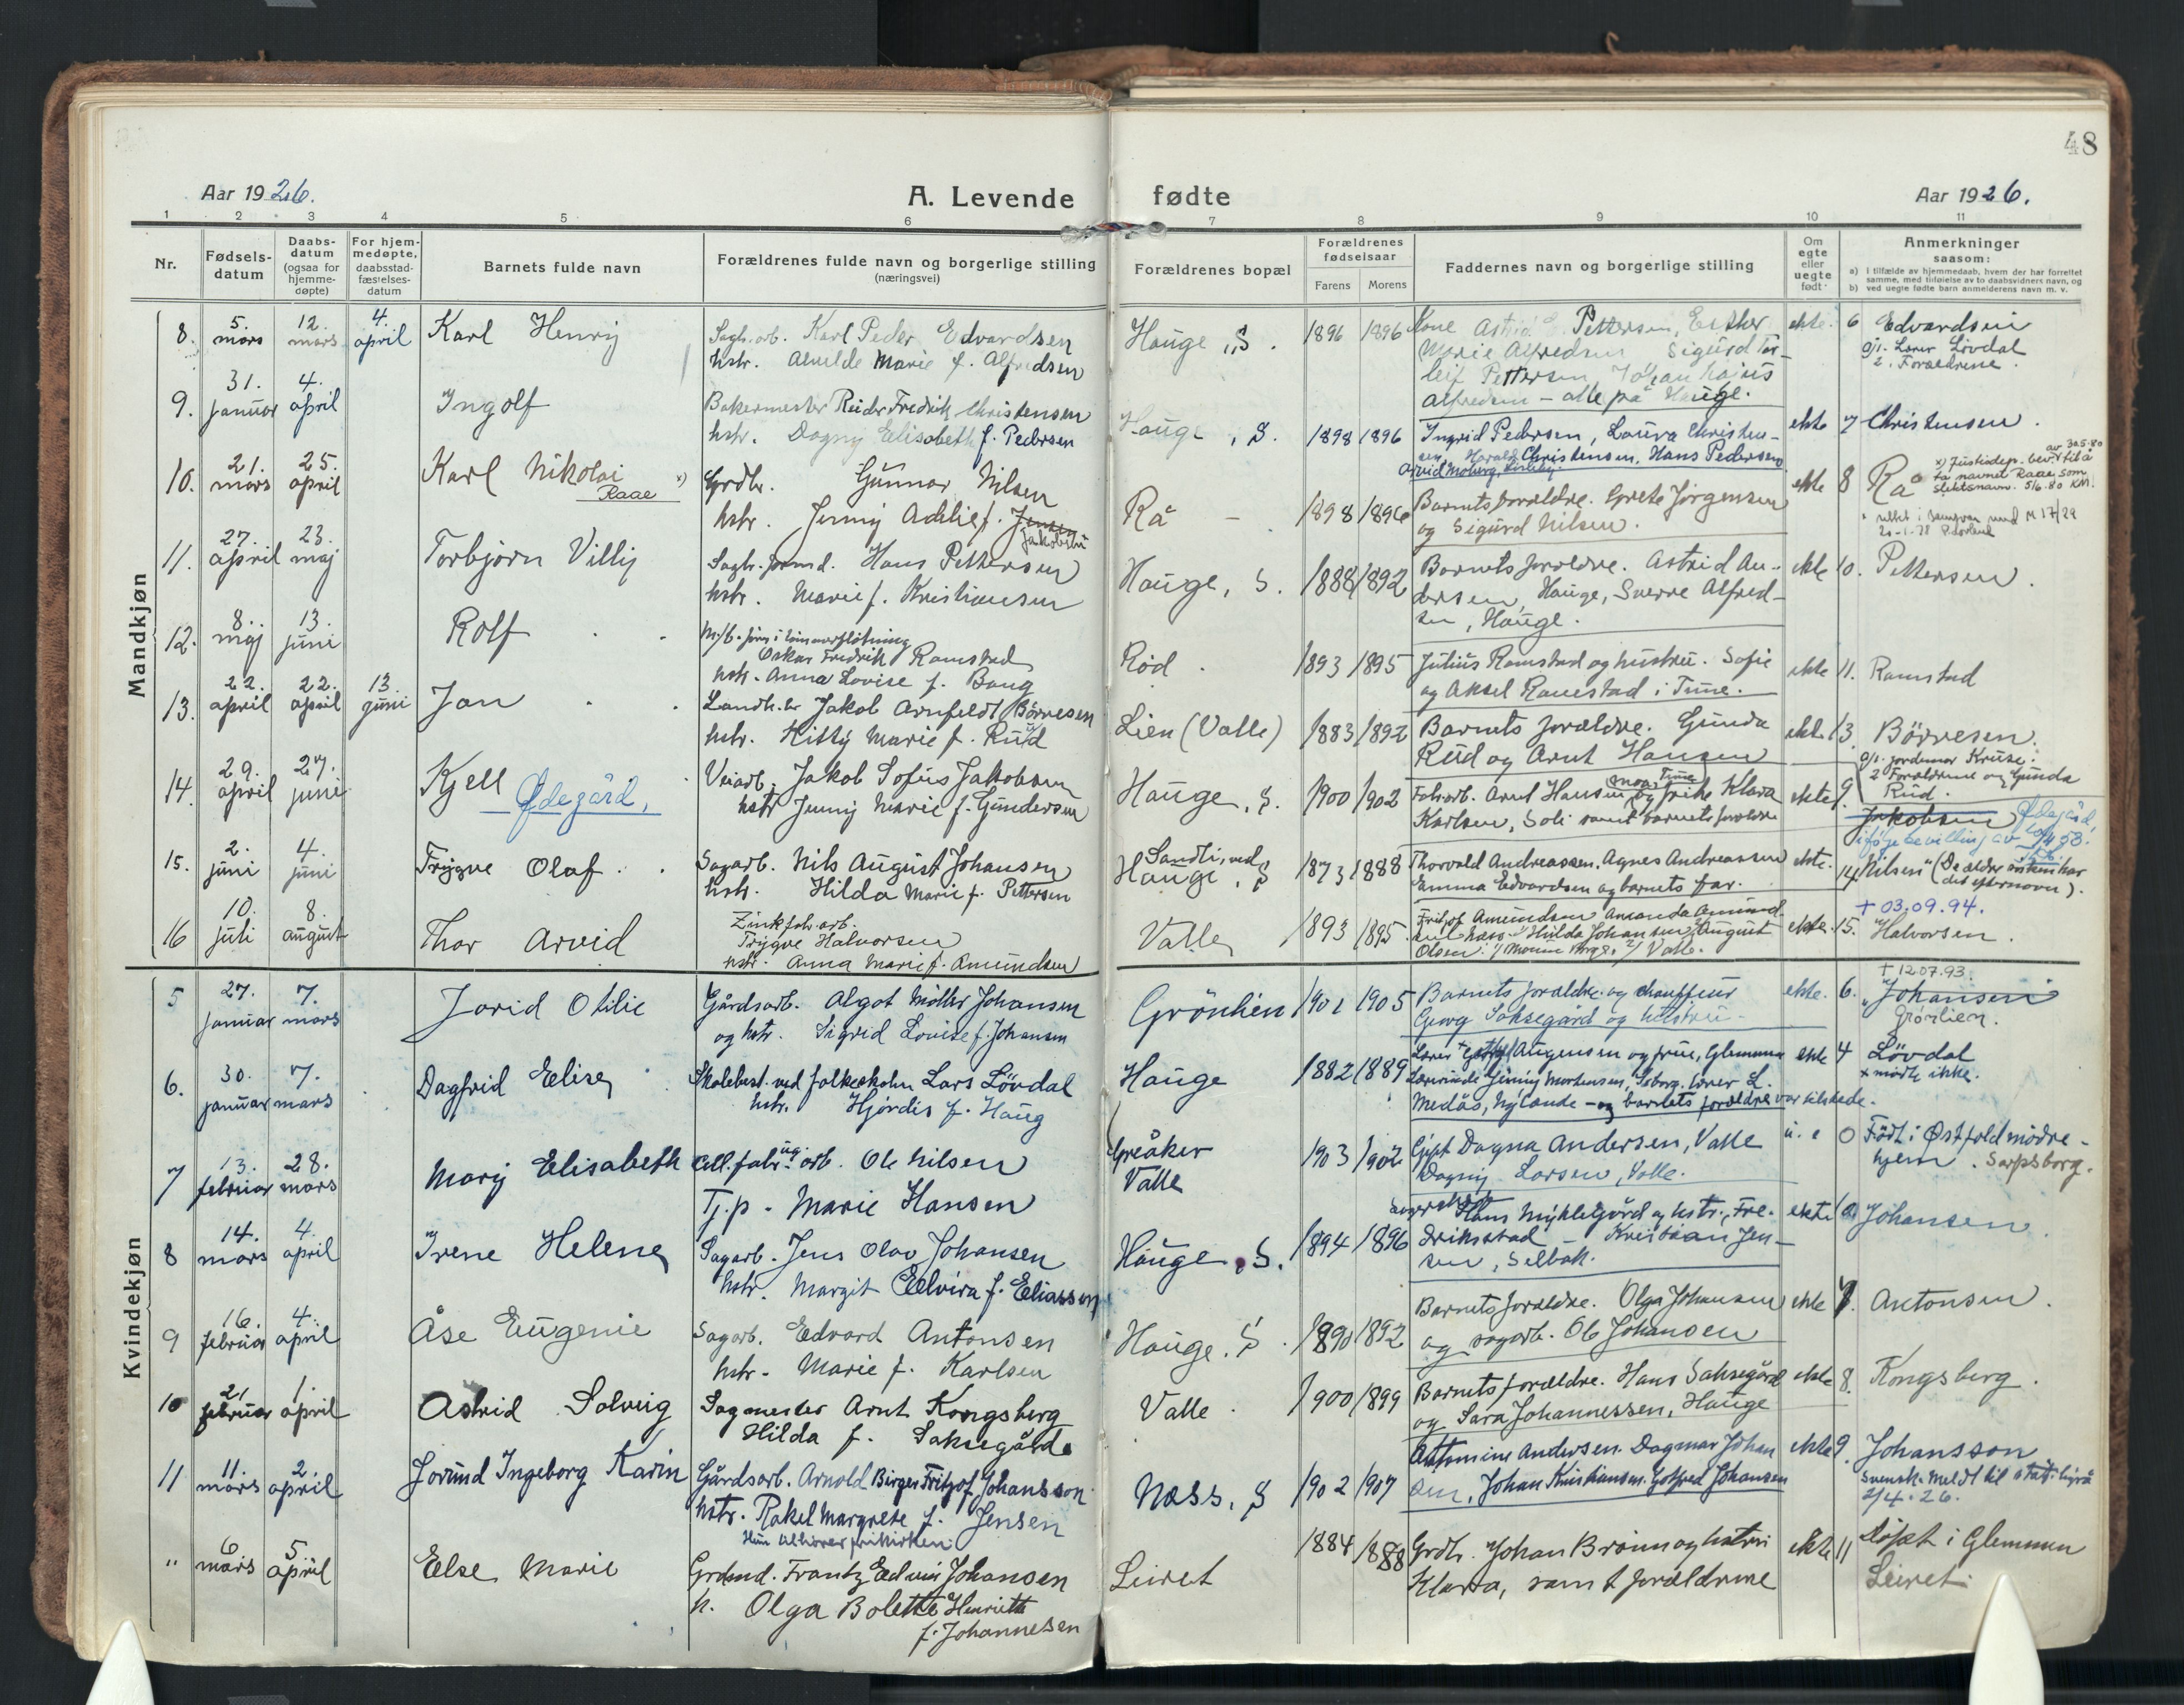 48
Aar 1926.
A. Levende fødte
Aar 1926.
1 2 3 4 5 6 7 8 9 10 11
Nr.
Fødsels-
datum
Daabs-
datum
(ogsaa for
hjemme-
døpte)
For hjem-
medøpte,
daabsstad-
fæstelses-
datum
Barnets fulde navn
Forældrenes fulde navn og borgerlige stilling
(næringsvei)
Forældrenes bopæl
Forældrenes
fødselsaar
Farens Morens
Faddernes navn og borgerlige stilling
Om
egte
eller
uegte
født
Anmerkninger
saasom:
a) I tilfælde av hjemmedaab, hvem der har forrettet
samme, med tilføielse av to daabsvidners navn, og
b) ved uegte fødte barn anmelderens navn m. v.
Mandkjøn
8. 5. mars 12. mars 4. april Karl Henry
Sagb.arb. Karl Peder Edvardsen
hstr. Alvilde Marie f. Alfredsen
Hauge, S. 1896 1896
Kone Astrid E. Pettersen, Esther
Marie Alfredsen Sigurd Tor-
leif Pettersen, Johan
Alfredsen - alle på Hauge.
ekte. 6 Edvardsen
1. Lærer Lövdal
2. Forældrene.
9. 31. januar 4. april Ingolf
Bakermester Reidar Fredrik Christensen
hstr. Dagny Elisabeth f. Pedersen
Hauge, S. 1898 1896
Ingrid Pedersen, Laura Christen-
sen, Harald Christensen, Hans Pedersen
Arvid Moberg,
ekte 7 Christensen.
10. 21. mars 25. april Karl Nikolai x)
Raae
Grdbr. Gunnar Nilsen
hstr. Jenny Adelie f. Jensen
Rå - 1898 1896
Barnets forældre. Grete Jörgensen
og Sigurd Nilsen.
ekte 8 Rå
x) Justisdep. bev. av 30.5.80 til å
ta navnet Raae som
slektsnavn. 5/6.80 KM.
11. 27. april 23. maj Torbjörn Villy
Sagb. formd. Hans Pettersen
hstr. Marie f. Kristiansen
Hauge, S. 1888 1892
Barnets forældre. Astrid An-
dersen, Hauge, Sverre Alfred-
sen, Hauge.
ekte 10. Pettersen.
12. 8. maj 13. juni Rolf
Oskar Fredrik Ramstad
hstr. Anna Lovise f. Bang
Röd. 1893 1895
Julius Ramstad og hustru. Sofie
og Aksel Ramstad i Tune.
ekte 11. Ramstad
13. 22. april 22. april 13. juni Jan
Landh.br Jakob Arnfeldt Börresen
hstr. Kitty Marie f. Ruud
Lien (Valle) 1883 1892
Barnets forældre. Gunda
Rud og Arnt Hansen
ekte 13 Börresen.
1. jordemor Kruse.
2 Forældrene og Gunda
Rud.
14. 29. april 27. juni Kjell Ødegård.
Veiarb. Jakob Sofus Jakobsen
hstr Jenny Marie f. Gundersen
Hauge, S. 1900 1902
Fabr.arb. Arnt Hansen og frøken Klara
Karlsen, Soli samt barnets forældre
ekte 9. Jakobsen Ødegård.
15. 2. juni 4. juni Trygve Olaf
Sagarb. Nils August Johansen
hstr. Hilda Marie f. Pettersen
Sandli, ved
Hauge, S 1873 1888
Thorvald Andreassen, Agnes Andreassen
Emma Edvardsen og barnets far.
ekte. 14. "Nilsen" (De ældre søsken har
det efternavn).
+ 03.09.94.
16 10. juli 8. august Thor Arvid
Zinkfabr. arb.
Trygve Halvorsen
hstr. Anna Marie f. Amundsen
Valle 1893 1895.
Fritjof Amundsen Amanda Amund-
sen Hilda Johansen August
Olsen. 2) Valle.
ekte. 15. Halvorsen.
Kvindekjøn
5 27. januar 7. mars Jorid Otilie
Gårdsarb. Algot Möller Johansen
og hstr. Sigrid Lovise f. Johansen
Grönlien 1901 1905
Barnets forældre og chauffeur
Georg Saksegård og hustru.
ekte. 6.
+ 12.07.93.
"Johansen"
Grønlien.
6. 30. januar 7. mars Dagfrid Elise
Skolebest. ved folkeskolen Lars Lövdal
hstr. Hjördis f. Haug
Hauge 1882 1889
Lærer Augensen og frue, Glemmen
Lærerinde Jenny Mortensen, lærer L.
Medås, Nylande - og barnets forældre var tilstede.
ekte 4 Lövdal
x mötte ikke.
7 13. februar 28. mars Mary Elisabeth
Cell. fabr. arb. Ole Nilsen
Tj.p. Marie Hansen
Greåker
Valle 1903 1902
Gift Dagna Andersen, Valle
Dagny Larsen, Valle.
u.e 0 Födt i Østfold mødre-
hjem. Sarpsborg.
8 14. mars 4. april Irene Helene
Sagarb. Jens Olav Johansen
hstr. Margit Elvira f. Eliassen
Hauge, S. 1894 1896
Hans Myklegård og hstr., Fre-
driksstad - Kristian Jen-
sen, Selbak.
ekte Johansen.
9 16. februar 4. april Åse Eugenie
Sagarb. Edvard Antonsen
hstr. Marie f. Karlsen
Hauge. S. 1890 1892
Barnets forældre. Olga Johansen
og sagarb. Ole Johansen
ekte 7. Antonsen.
10 21 februar 1. april Astrid Solveig
Sagmester Arnt Kongsberg
Hilda f. Saksegårde
Valle. 1900 1899
Barnets forældre. Hans Saksegård
og Sara Johannessen, Hauge
ekte 8. Kongsberg.
11 11. mars 2 april Jorund Ingeborg Karin
Gårdsarb. Arnold Birger Fritjof Johansson
hstr. Rakel Margrete f. Jensen
Hun tilhører frikirken
Næss, S 1902 1907
Antomine Andersen. Dagmar Johan
sen, Johan Kristiansen. Gotfred Johansen
ekte 9. Johansson
Svensk. Meldt til stat. byrå
2/4.26.
" 6 mars 5 april Else Marie
Grdmd. Frantz Edvin Johansen
h. Olga Bolette Henriette
f. Johannesen
Leiret 1884 1888
Grdbr. Johan Brönn og hustru
Klara, samt forældrene
ekte 11 Döpt i Glemmen
Leiret.